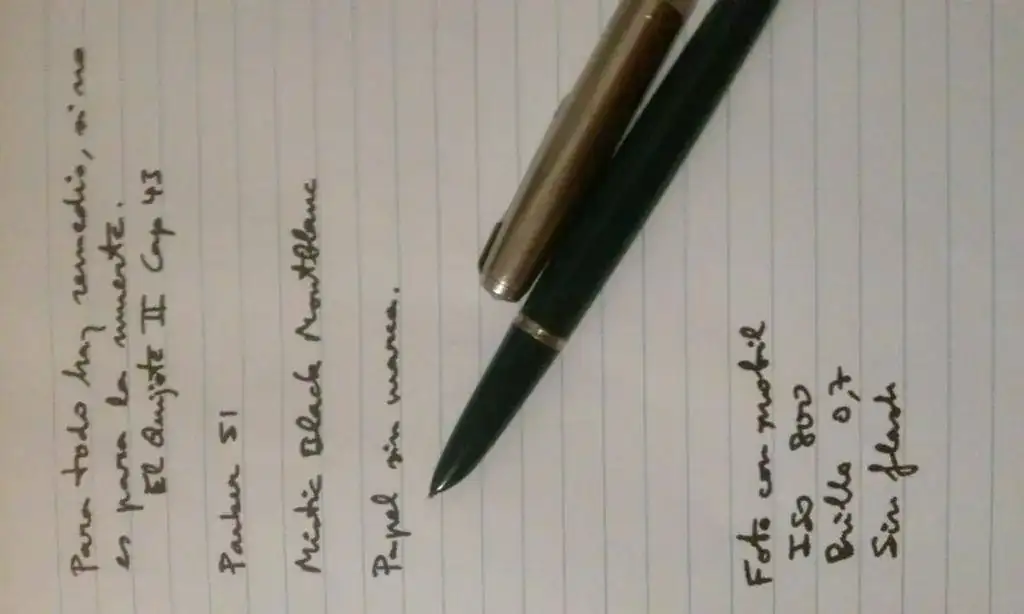 Para todo hay remedio, si no
es para la muerte.
El Quijote II Cap 43
Parker 51
Mistic Black MontBlanc
Papel sin marca.
Foto con mobil
ISO 800
Brillo 0,7
Sin flash